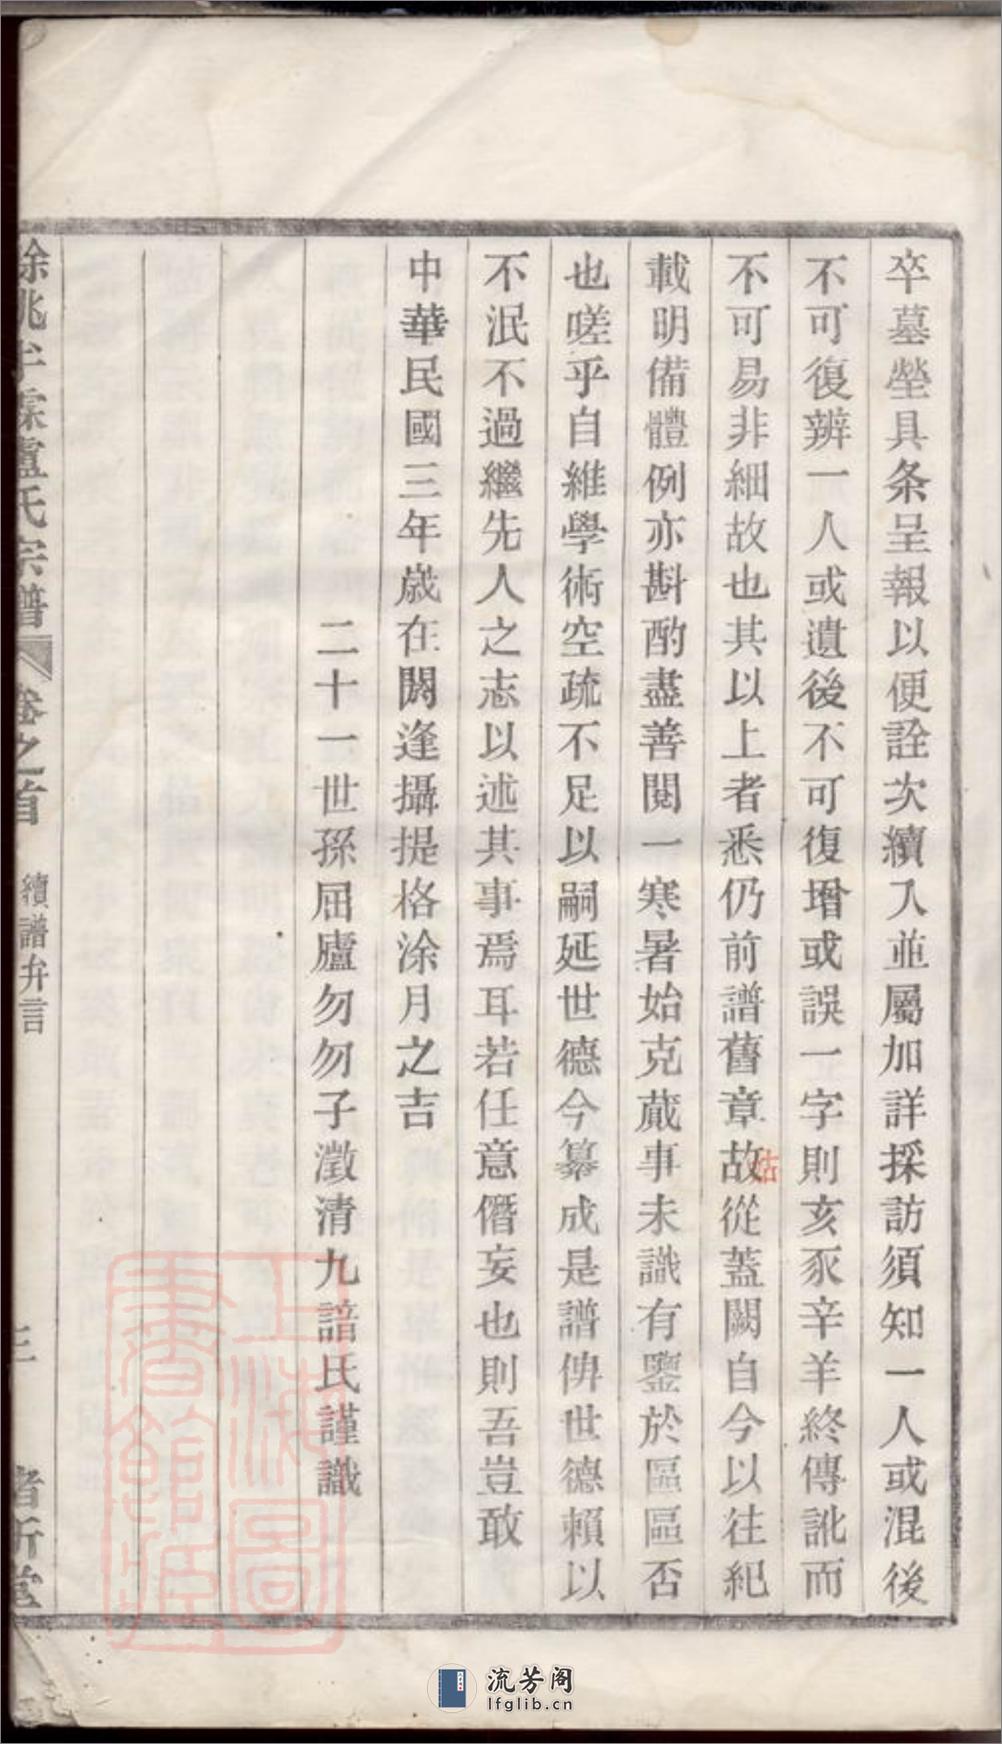 卒墓塋具条呈報以便詮次續入並屬加詳採訪須知一人或混後
不可復辨一人或遺後不可復增或誤一字則亥豕辛羊終傳訛而
不可易非細故也其以上者悉仍前譜舊章故從蓋闕自今以往紀
姑
載明備體例亦斟酌盡善閱一寒暑始克蕆事未識有鑒於區區否
也嗟乎自維學術空疏不足以嗣延世德今纂成是譜俾世德賴以
不泯不過繼先人之志以述其事焉耳若任意僭妄也則吾豈敢
中華民國三年歲在閼逢攝提格涂月之吉
二十一世孫屈廬勿勿子澂清九諳氏謹識
餘姚半霖盧氏宗譜
卷之首
續譜弁言
三
上海圖書館藏
流芳阁
lfglib.cn